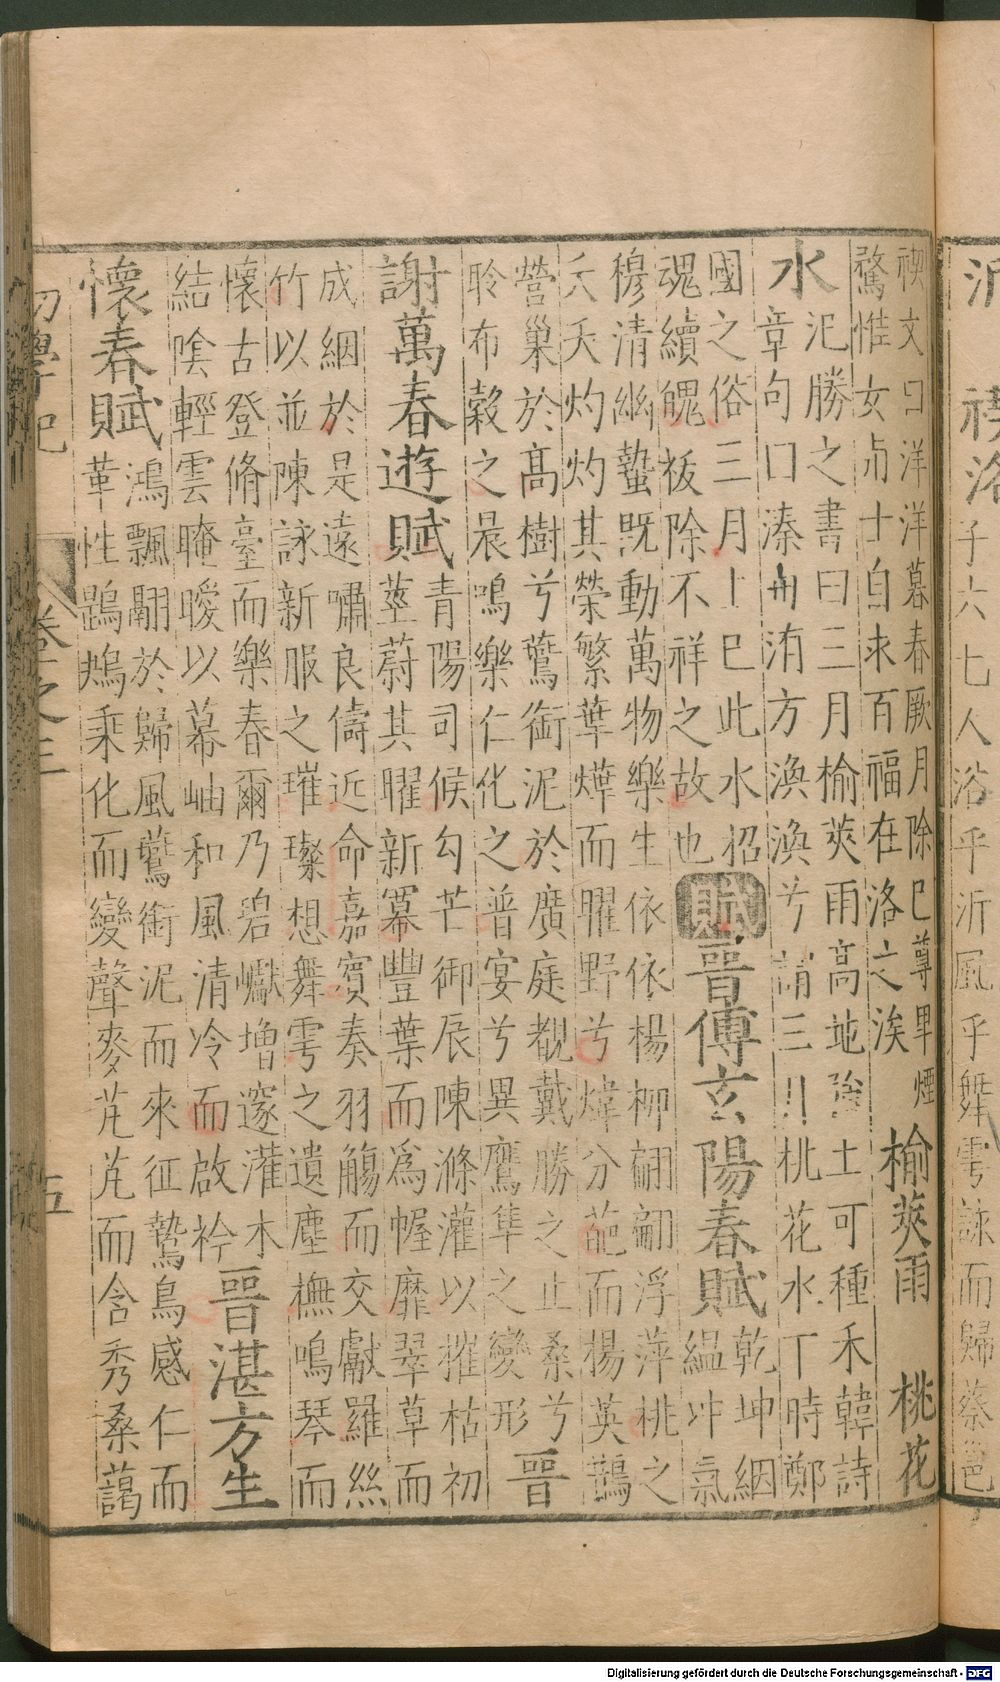 沂 禊洛
子六七人浴乎沂風乎舞雩詠而歸蔡邕
禊文曰洋洋暮春厥月除巳尊卑煙
騖惟女與士自求百福在洛之涘
榆莢雨 桃花
水
汜勝之書曰三月榆莢雨高地強土可種禾韓詩
章句曰溱與洧方渙渙兮謂三月桃花水下時鄭
國之俗三月上巳此水招
魂續魄祓除不祥之故也
賦晉傅玄陽春賦
乾坤絪
縕冲氣
穆清幽蟄既動萬物樂生依依楊柳翩翩浮萍桃之
夭夭灼灼其榮繁華燁而曜野兮煒芬葩而楊英鵲
營巢於高樹兮鷰銜泥於廣庭覩戴勝之止桑兮
聆布穀之晨鳴樂仁化之普宴兮異鷹隼之變形
晉
謝萬春遊賦
青陽司候勾芒御辰陳滌灌以摧枯初
莖蔚其曜新冪豐葉而為幄靡翠草而
成絪於是遠嘯良儔近命嘉賓奏羽觴而交獻羅絲
竹以並陳詠新服之璀璨想舞雩之遺塵撫鳴琴而
懷古登脩臺而樂春爾乃碧巘增邃灌木
結陰輕雲晻曖以幕岫和風清冷而啟衿
晉湛方生
懷春賦
鴻飄翩於歸風鷰銜泥而來征鷙鳥感仁而
革性鵾鴆乘化而變聲麥芃芃而含秀桑藹
初學記 卷之三 五
Digitalisierung gefördert durch die Deutsche Forschungsgemeinschaft - DFG